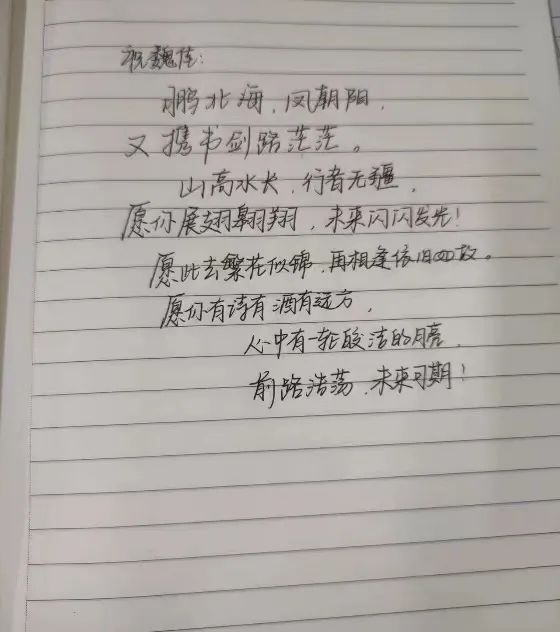 祝魏佳:
鹏北海,凤朝阳,
又携书剑路茫茫。
山高水长,行者无疆,
愿你展翅翱翔,未来闪闪发光!
愿此去繁花似锦,再相逢依旧如故。
愿你有诗有酒有远方,
心中有一轮皎洁的月亮,
前路浩荡,未来可期!